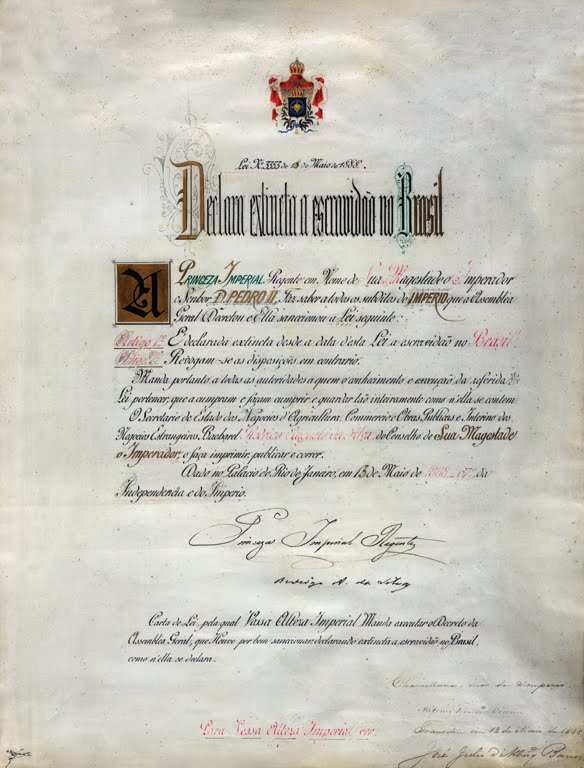 Lei Nº 3353 de 13 de Maio de 1888.
Declara extincta a escravidão no Brasil
A PRINCEZA IMPERIAL Regente em Nome de Sua Magestade o Imperador
o Senhor D. PEDRO II, Faz saber a todos os subditos do IMPERIO que a Assembléa
Geral Decretou e Ella sanccionou a Lei seguinte:
Artigo 1º É declarada extincta desde a data d'esta Lei a escravidão no Brasil.
Artigo 2º Revogam-se as disposições em contrario.
Manda portanto a todas as autoridades a quem o conhecimento e execução da referida
Lei pertencer, que a cumpram e façam cumprir e guardar tão inteiramente como n'ella se contem.
O Secretario de Estado dos Negocios d'Agricultura, Commercio e Obras Publicas e Interino dos
Negocios Estrangeiros, Bacharel Rodrigo Augusto da Silva, do Conselho de Sua Magestade
o Imperador, o faça imprimir, publicar e correr.
Dado no Palacio do Rio de Janeiro, em 13 de Maio de 1888-67º da
Independencia e do Imperio.
Princeza Imperial Regente
Rodrigo A. da Silva
Carta de Lei, pela qual Vossa Alteza Imperial Manda executar o Decreto da
Assembléa Geral, que Houve por bem sanccionar, declarando extincta a escravidão no Brasil,
como n'ella se declara.
Para Vossa Alteza Imperial ver.
Chancellaria-mór do Imperio
Antonio Ferreira Vianna
Transitou em 13 de Maio de 1888
José Julio d'Albuqº Barros